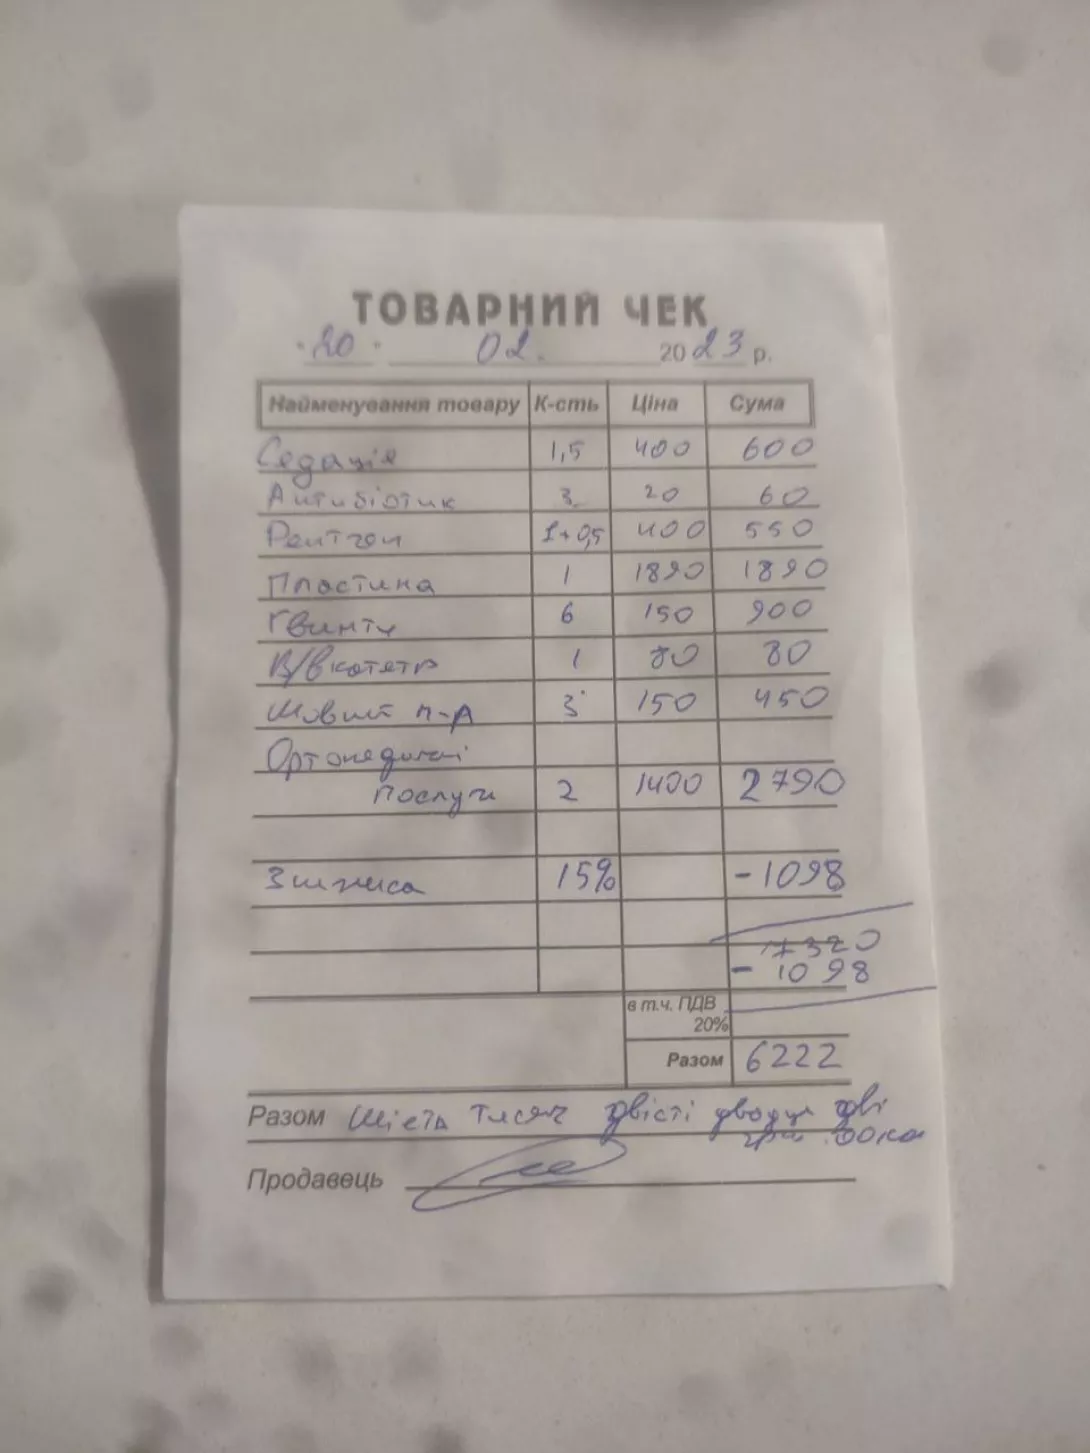 ТОВАРНИЙ ЧЕК
"20" 02. 2023 р.
Найменування товару К-сть Ціна Сума
Седація 1,5 400 600
Антибіотик 3 20 60
Рентген 1+0,5 400 550
Пластина 1 1890 1890
Гвинти 6 150 900
В/в катетр 1 80 80
Шовний п-л 3 150 450
Ортопедичні
послуги 2 1400 2790
Знижка 15% -1098
7320
- 1098
в т.ч. ПДВ
20%
Разом 6222
Разом Шість тисяч двісті двадць дві
грн 00 коп
Продавець